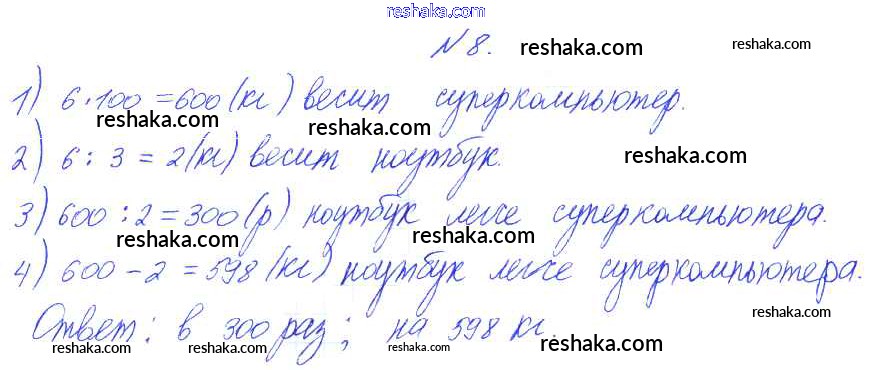 reshaka.com
№8. reshaka.com
1) 6·100=600 (кг) весит суперкомпьютер.
reshaka.com reshaka.com reshaka.com
2) 6 : 3 = 2 (кг) весит ноутбук. reshaka.com
3) 600 : 2 = 300 (р) ноутбук легче суперкомпьютера.
reshaka.com reshaka.com
4) 600 - 2 = 598 (кг) ноутбук легче суперкомпьютера.
Ответ: в 300 раз; на 598 кг.
reshaka.com reshaka.com reshaka.com reshaka.com reshaka.com